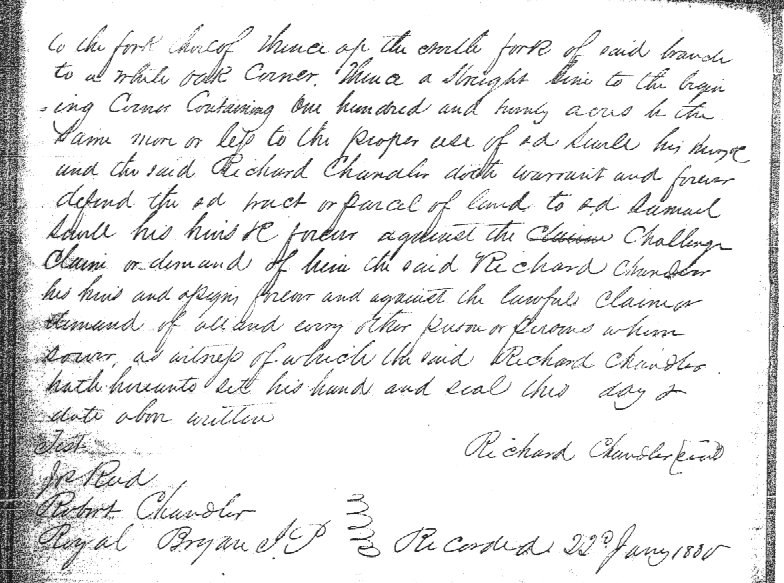 to the fork thereof thence up the fork of said branch
to a white oak Corner. Thence a straight line to the begin
=ing Corner Containing One hundred and twenty acres be the
same more or less to the proper use of sd Saull his heirs &c
and the said Richard Chandler doth warrant and forever
defend the sd tract or parcel of land to sd Samuel
Saull his heirs &c forever against the claim Challenge
Claim or demand of him the said Richard Chandler
his heirs and assigns forever and against the lawfull claim or
demand of all and every other person or persons whom
soever, as witness of which the said Richard Chandler
hath hereunto set his hand and seal this day &
date abov written
Test
Richard Chandler (seal)
Jos Reid
Robert Chandler
Royal Bryan J.P Recorded 22d Jany